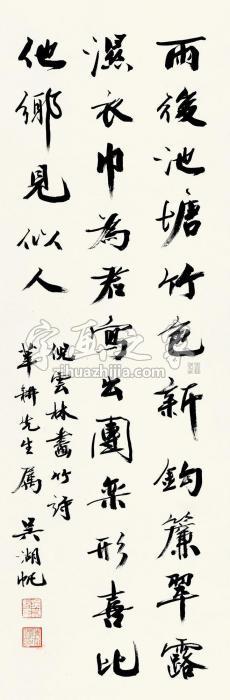 雨後池塘竹色新鈎簾翠露
濕衣巾為君寫出團欒形喜比
他鄉見似人
倪雲林畫竹詩
華耕先生屬 吳湖帆
字画之家
zihuazhijia.com